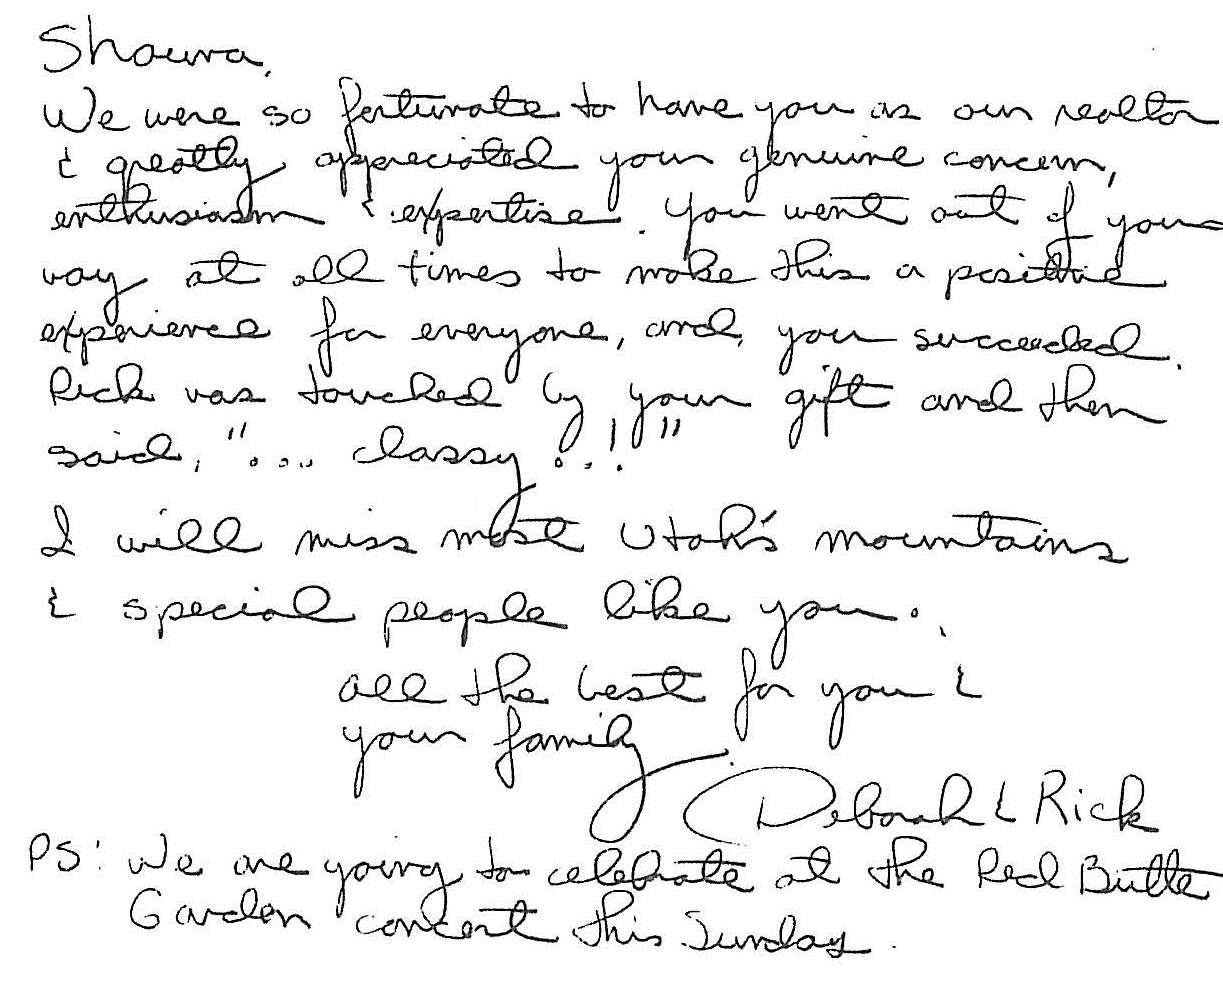 Shauna,
We were so fortunate to have you as our realtor
& greatly appreciated your genuine concern,
enthusiasm & expertise. You went out of your
way at all times to make this a positive
experience for everyone, and, you succeeded.
Rick was touched by your gift and then
said, "... classy...!"
I will miss most Utah's mountains
& special people like you.
all the best for you &
your family
Deborah & Rick
PS: We are going to celebrate at the Red Butte
Garden concert this Sunday.